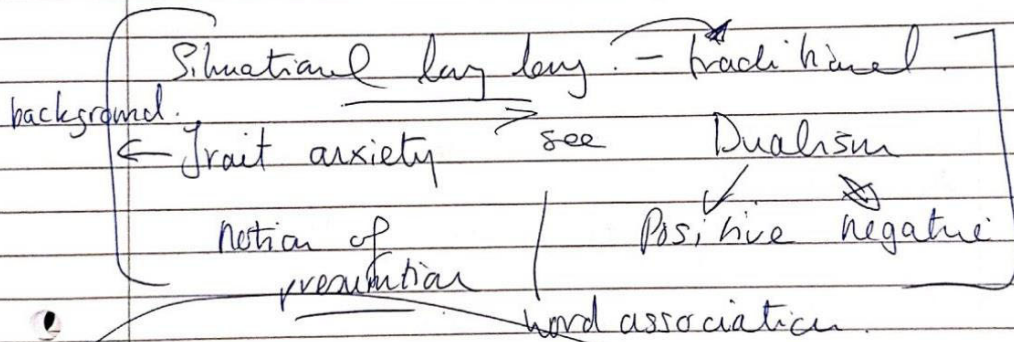 Situational - traditional.
background.
← Trait anxiety see Dualism
notion of Positive negative
word association.